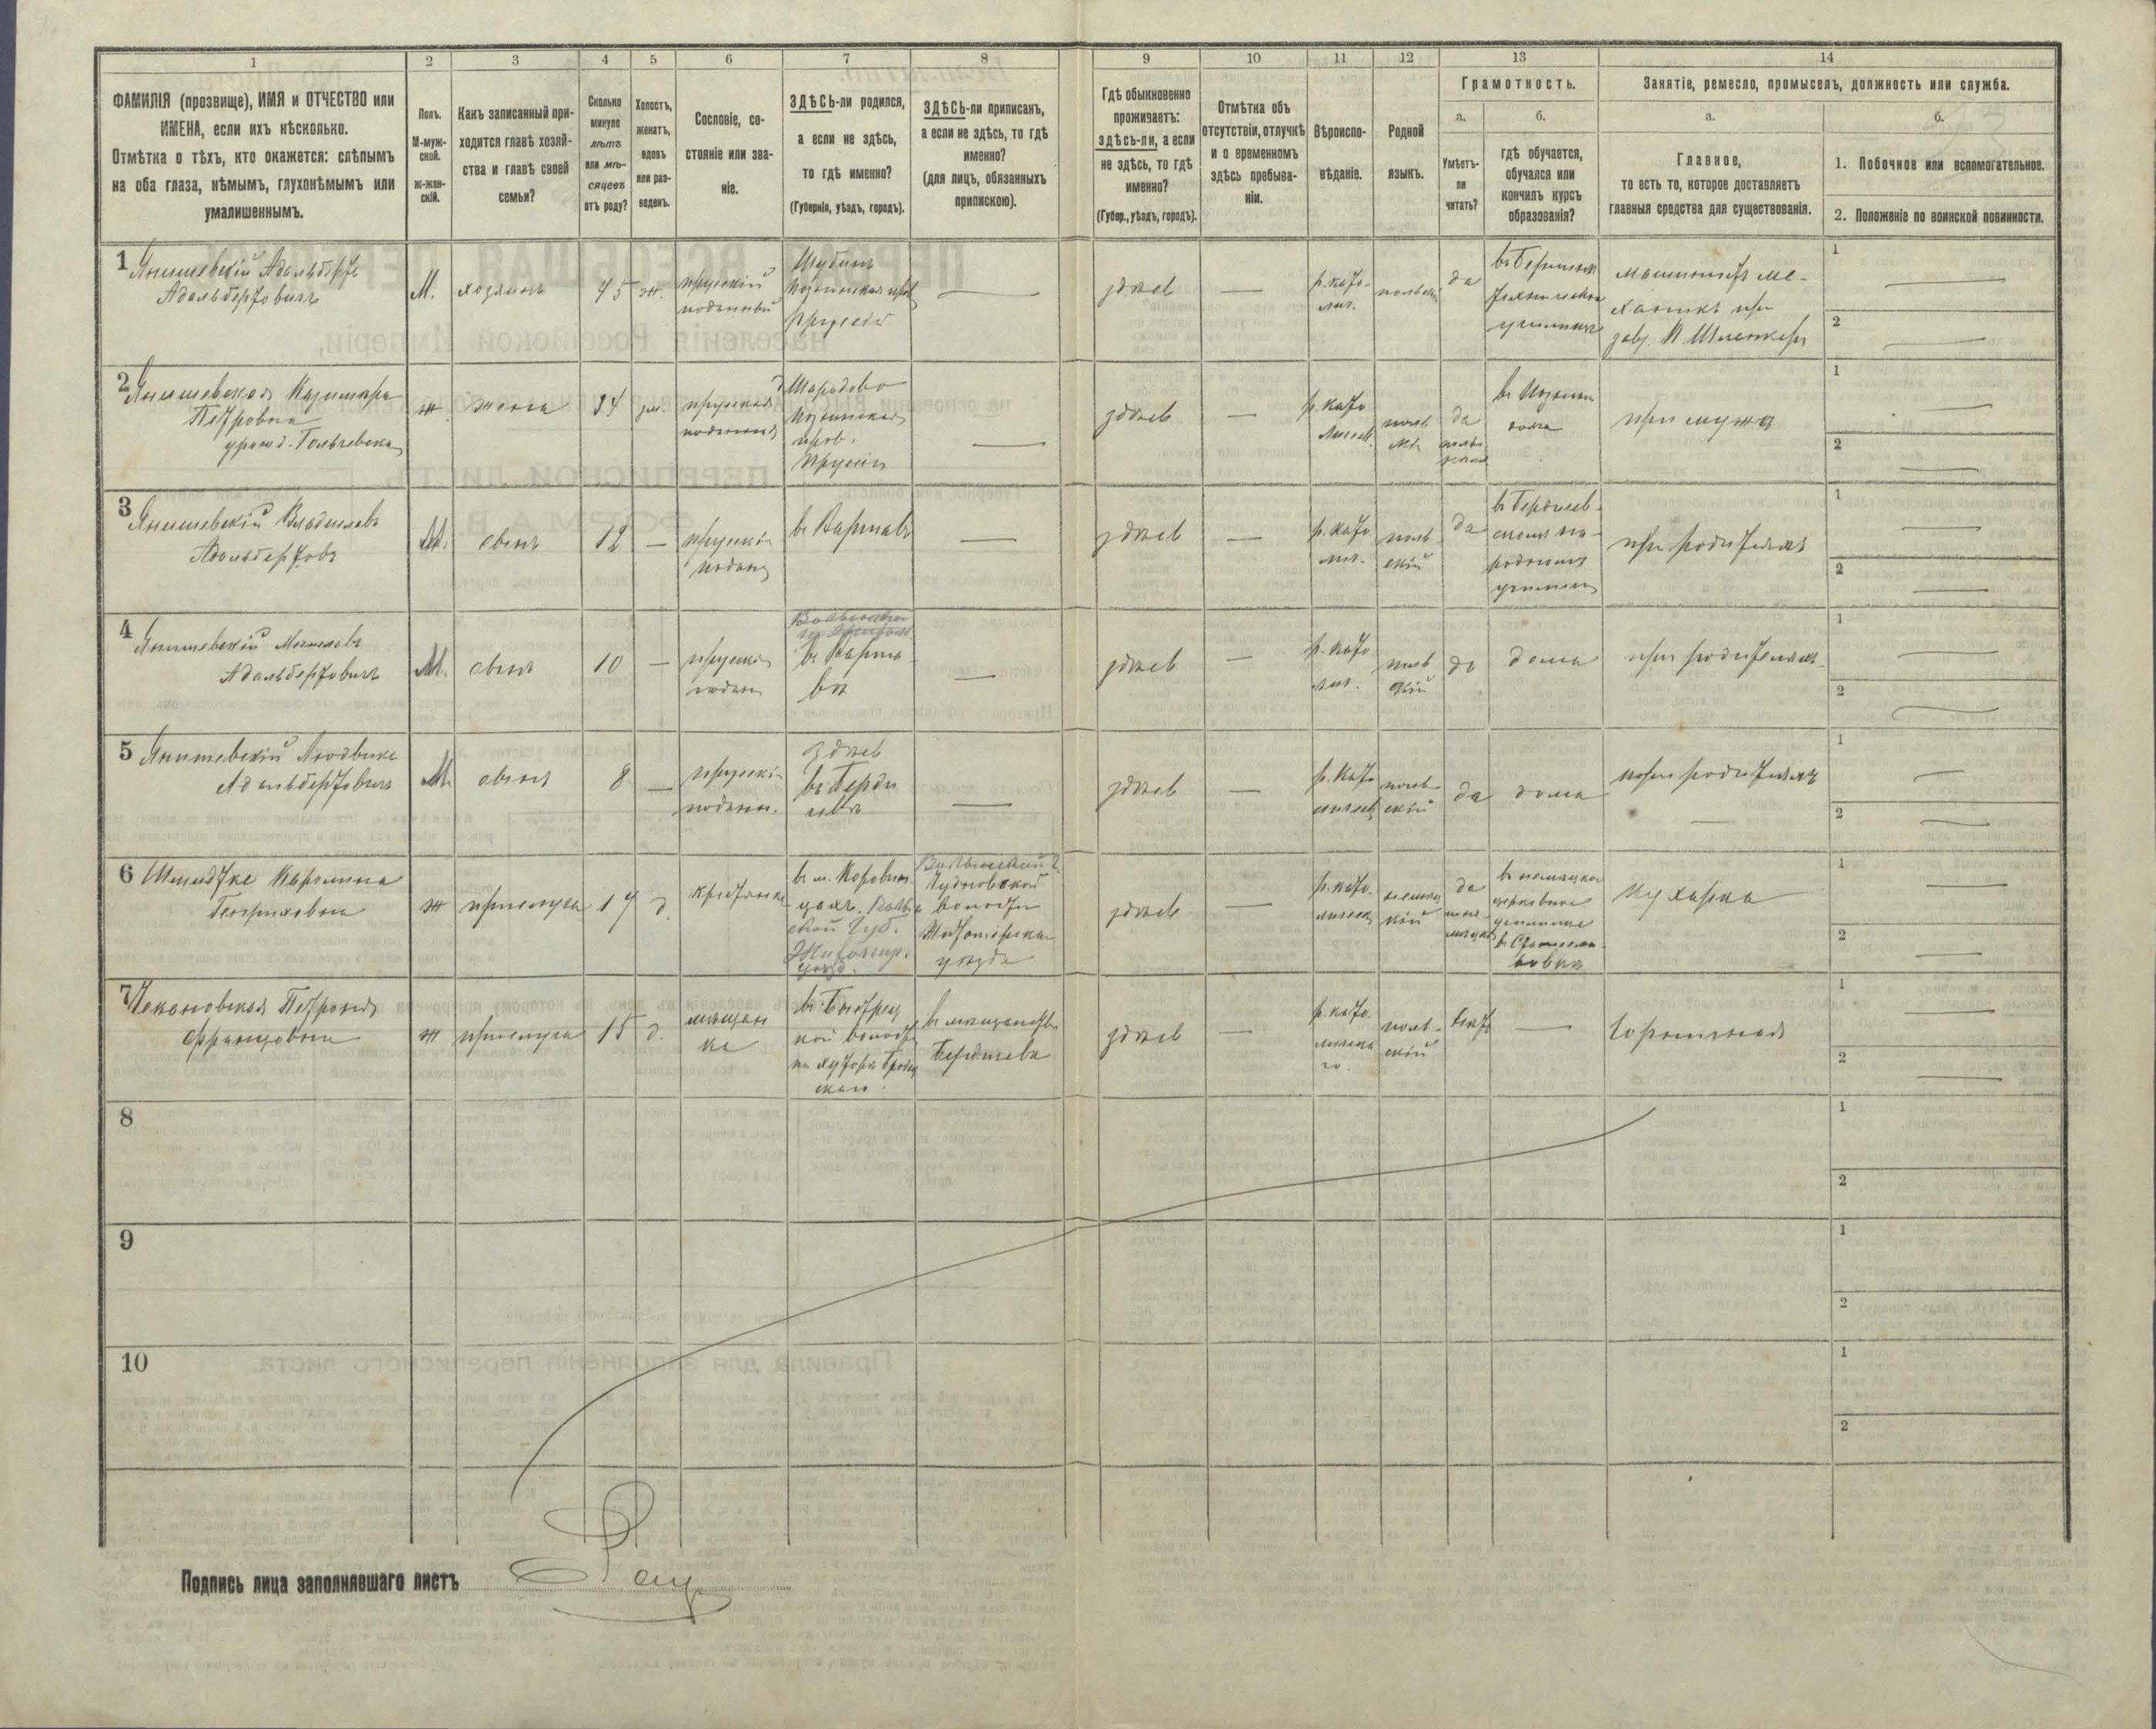 1 2 3 4 5 6 7 8 9 10 11 12 13 14
ФАМИЛІЯ (прозвище), ИМЯ и ОТЧЕСТВО или
ИМЕНА, если ихъ нѣсколько.
Отмѣтка о тѣхъ, кто окажется: слѣпымъ
на оба глаза, нѣмымъ, глухонѣмымъ или
умалишеннымъ.
Полъ.
М-муж-
ской.
Ж-жен-
скій.
Какъ записанный при-
ходится главѣ хозяй-
ства и главѣ своей
семьи?
Сколько
минуло
лѣтъ
или мѣ-
сяцевъ
отъ роду?
Холостъ,
женатъ,
вдовъ
или раз-
веденъ.
Сословіе, со-
стояніе или зва-
ніе.
ЗДѢСЬ-ли родился,
а если не здѣсь,
то гдѣ именно?
(Губернія, уѣздъ, городъ).
ЗДѢСЬ-ли приписанъ,
а если не здѣсь, то гдѣ
именно?
(для лицъ, обязанныхъ
припискою).
Гдѣ обыкновенно
проживаетъ:
здѣсь-ли, а если
не здѣсь, то гдѣ
именно?
(Губер., уѣздъ, городъ).
Отмѣтка объ
отсутствіи, отлучкѣ
и о временномъ
здѣсь пребыва-
ніи.
Вѣроиспо-
вѣданіе.
Родной
языкъ.
Грамотность.
а.
Умѣетъ-
ли
читать?
б.
гдѣ обучается,
обучался или
кончилъ курсъ
образованія?
Занятіе, ремесло, промыселъ, должность или служба.
а.
Главное,
то есть то, которое доставляетъ
главныя средства для существованія.
б.
1. Побочное или вспомогательное.
2. Положеніе по воинской повинности.
1 Янишевскій Адальбертъ
Адальбертовичъ
М.
хозяинъ
45
ж.
прусскій
подданный
Шубинъ
Познанская пров
Пруссія
—
здѣсь
—
р. като-
лич.
польскій
да
техническом
училище
машинистъ ме-
ханикъ при
зав.
1 —
2 —
2 Янишевская Казимира
Петровна
ж
жена
34
зам.
прусская
подданная
Познанская
пров.
Пруссіи
—
здѣсь
—
р. като
личес.
поль
скі
да
въ Познани
дома
при мужѣ
1 —
2 —
3 Янишевскій Владиславъ
Адальбертовъ
М.
сынъ
12
—
прусскій
подан
въ Варшавѣ
—
здѣсь
—
р. като
лич.
поль
скій
да
въ Бердичев-
скомъ на-
родномъ
училищѣ
при родителяхъ
1 —
2 —
4 Янишевскій
Адальбертовичъ
М.
сынъ
10
—
прусскі
подан
въ Варша-
вѣ
—
здѣсь
—
р. като
лич.
поль
скій
да
дома
при родителях.
1 —
2 —
5 Янишевскій Людвикъ
Адальбертовичъ
М.
сынъ
8
—
прусскі-
поданн.
здѣсь
въ Берди
чевѣ
—
здѣсь
—
р. като
личес
поль-
скій
да
дома
при родителяхъ
—
1 —
2 —
6 Шмидтке Каролина
Генриховна
ж
прислуга
19
д.
крестьянка
въ м.
Волы
ской губ.
Житомир.
уѣзд.
Волынской г.
Чудновской
волости
Житомірска
уѣзда
здѣсь
—
р. като
личес
немец
кій
да
по не-
мецки
въ немецком
церковном
училище
кухарка
1 —
2 —
7 Чекановская Петронія
Францовна
ж
прислуга
15
д.
мещан
ка
волост
на хуторѣ
въ мещанствѣ
Бердичева
здѣсь
—
р. като
поль-
скій
нетъ
—
горничная
1 —
2 —
8 1 2
9 1 2
10 1 2
Подпись лица заполнявшаго листъ